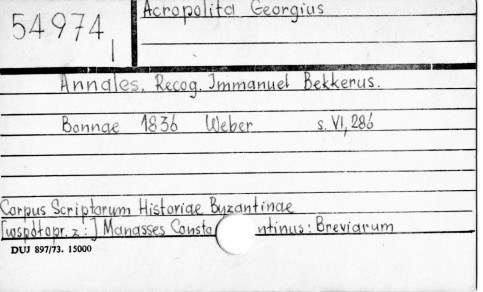 54974
I
Acropolita Georgius
Annales. Recog. Immanuel Bekkerus.
Bonnae 1836 Weber s. VI, 286
Corpus Scriptorum Historiae Byzantinae
[współopr. z:] Manasses Consta ntinus: Breviarum
DUJ 897/73. 15000